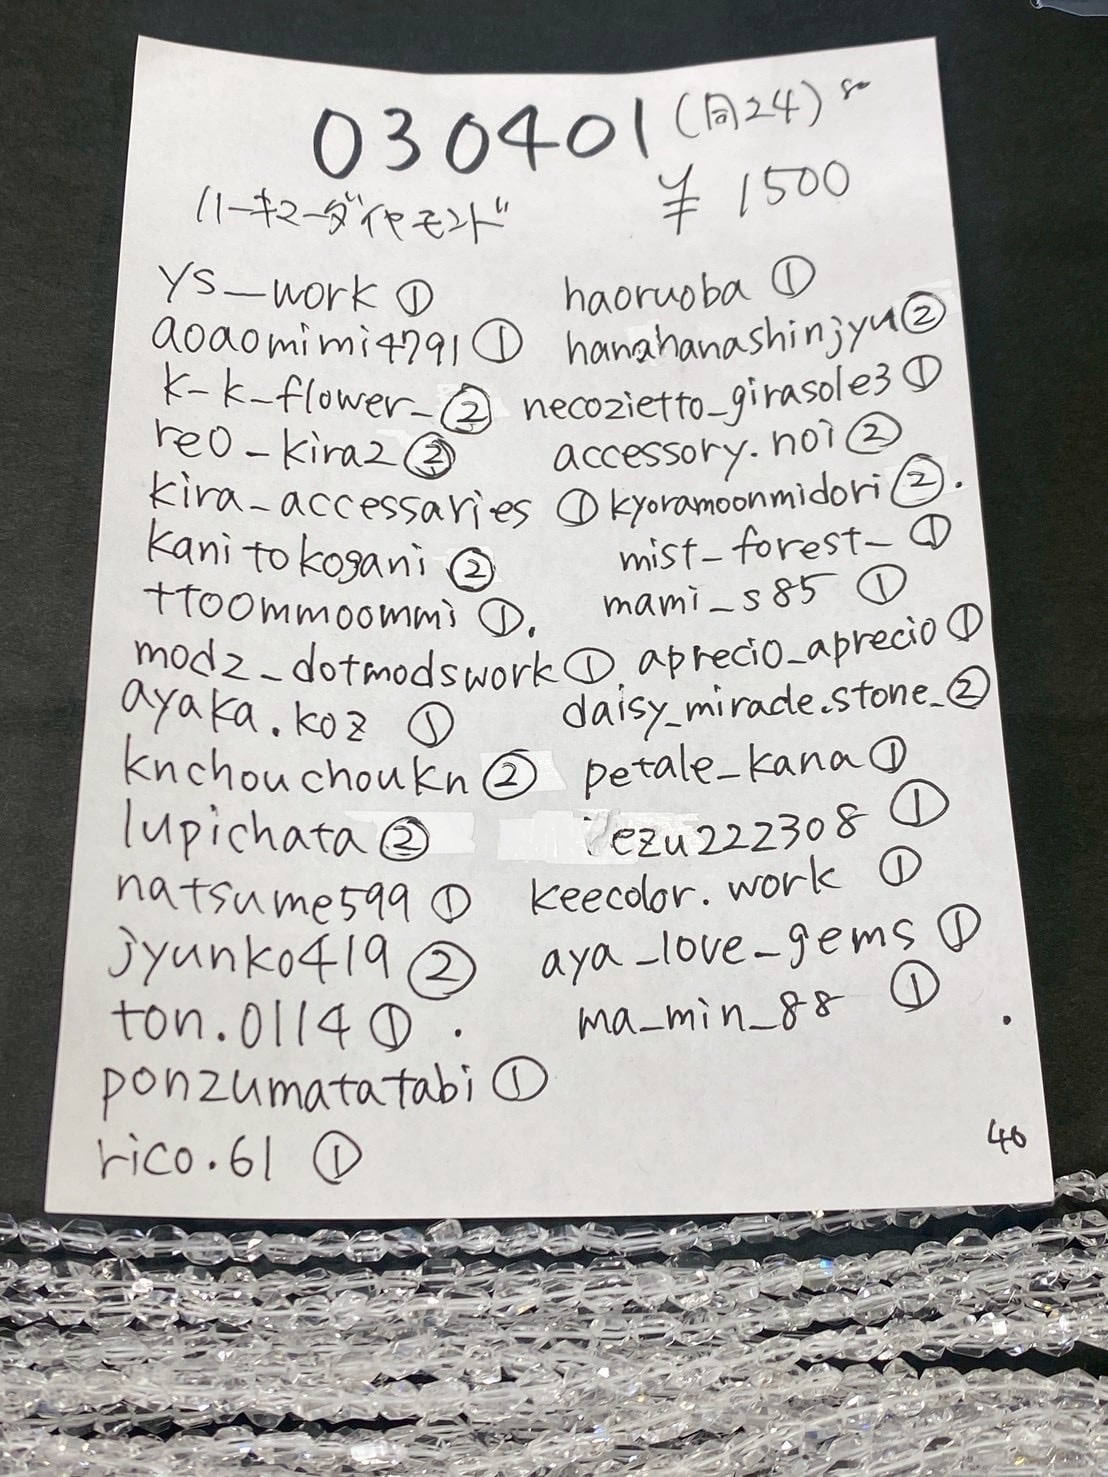 030401 (同24)
ハーキマーダイヤモンド ¥1500
ys_work ① haoruoba ①
aoaomimi4791 ① hanahanashinjyu ②
k-k-flower_ ② necozietto_girasole3 ①
reo_kira2 ② accessory.noi ②
kira_accessaries ① kyoramoonmidori ②.
kanitokogani ② mist_forest_ ①
ttoommoommi ①. mami_s85 ①
modz_dotmodswork ①. aprecio_aprecio ①
ayaka.koz ① daisy_miracle.stone_ ②
knchouchoukn ② petale_kana ①
lupichata ② ①
natsume599 ① keecolor.work ①
jyunko419 ② aya_love_gems ①
ton.0114 ①. ma_min_88 ①
ponzumatatabi ①
rico.61 ①
46